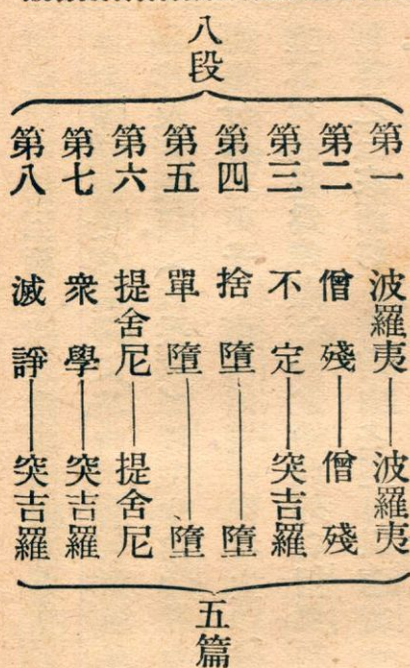 八段
第一 波羅夷——波羅夷
第二 僧殘——僧殘
第三 不定——突吉羅
第四 捨墮——墮
第五 單墮——墮
第六 提舍尼——提舍尼
第七 衆學——突吉羅
第八 滅諍——突吉羅
五篇